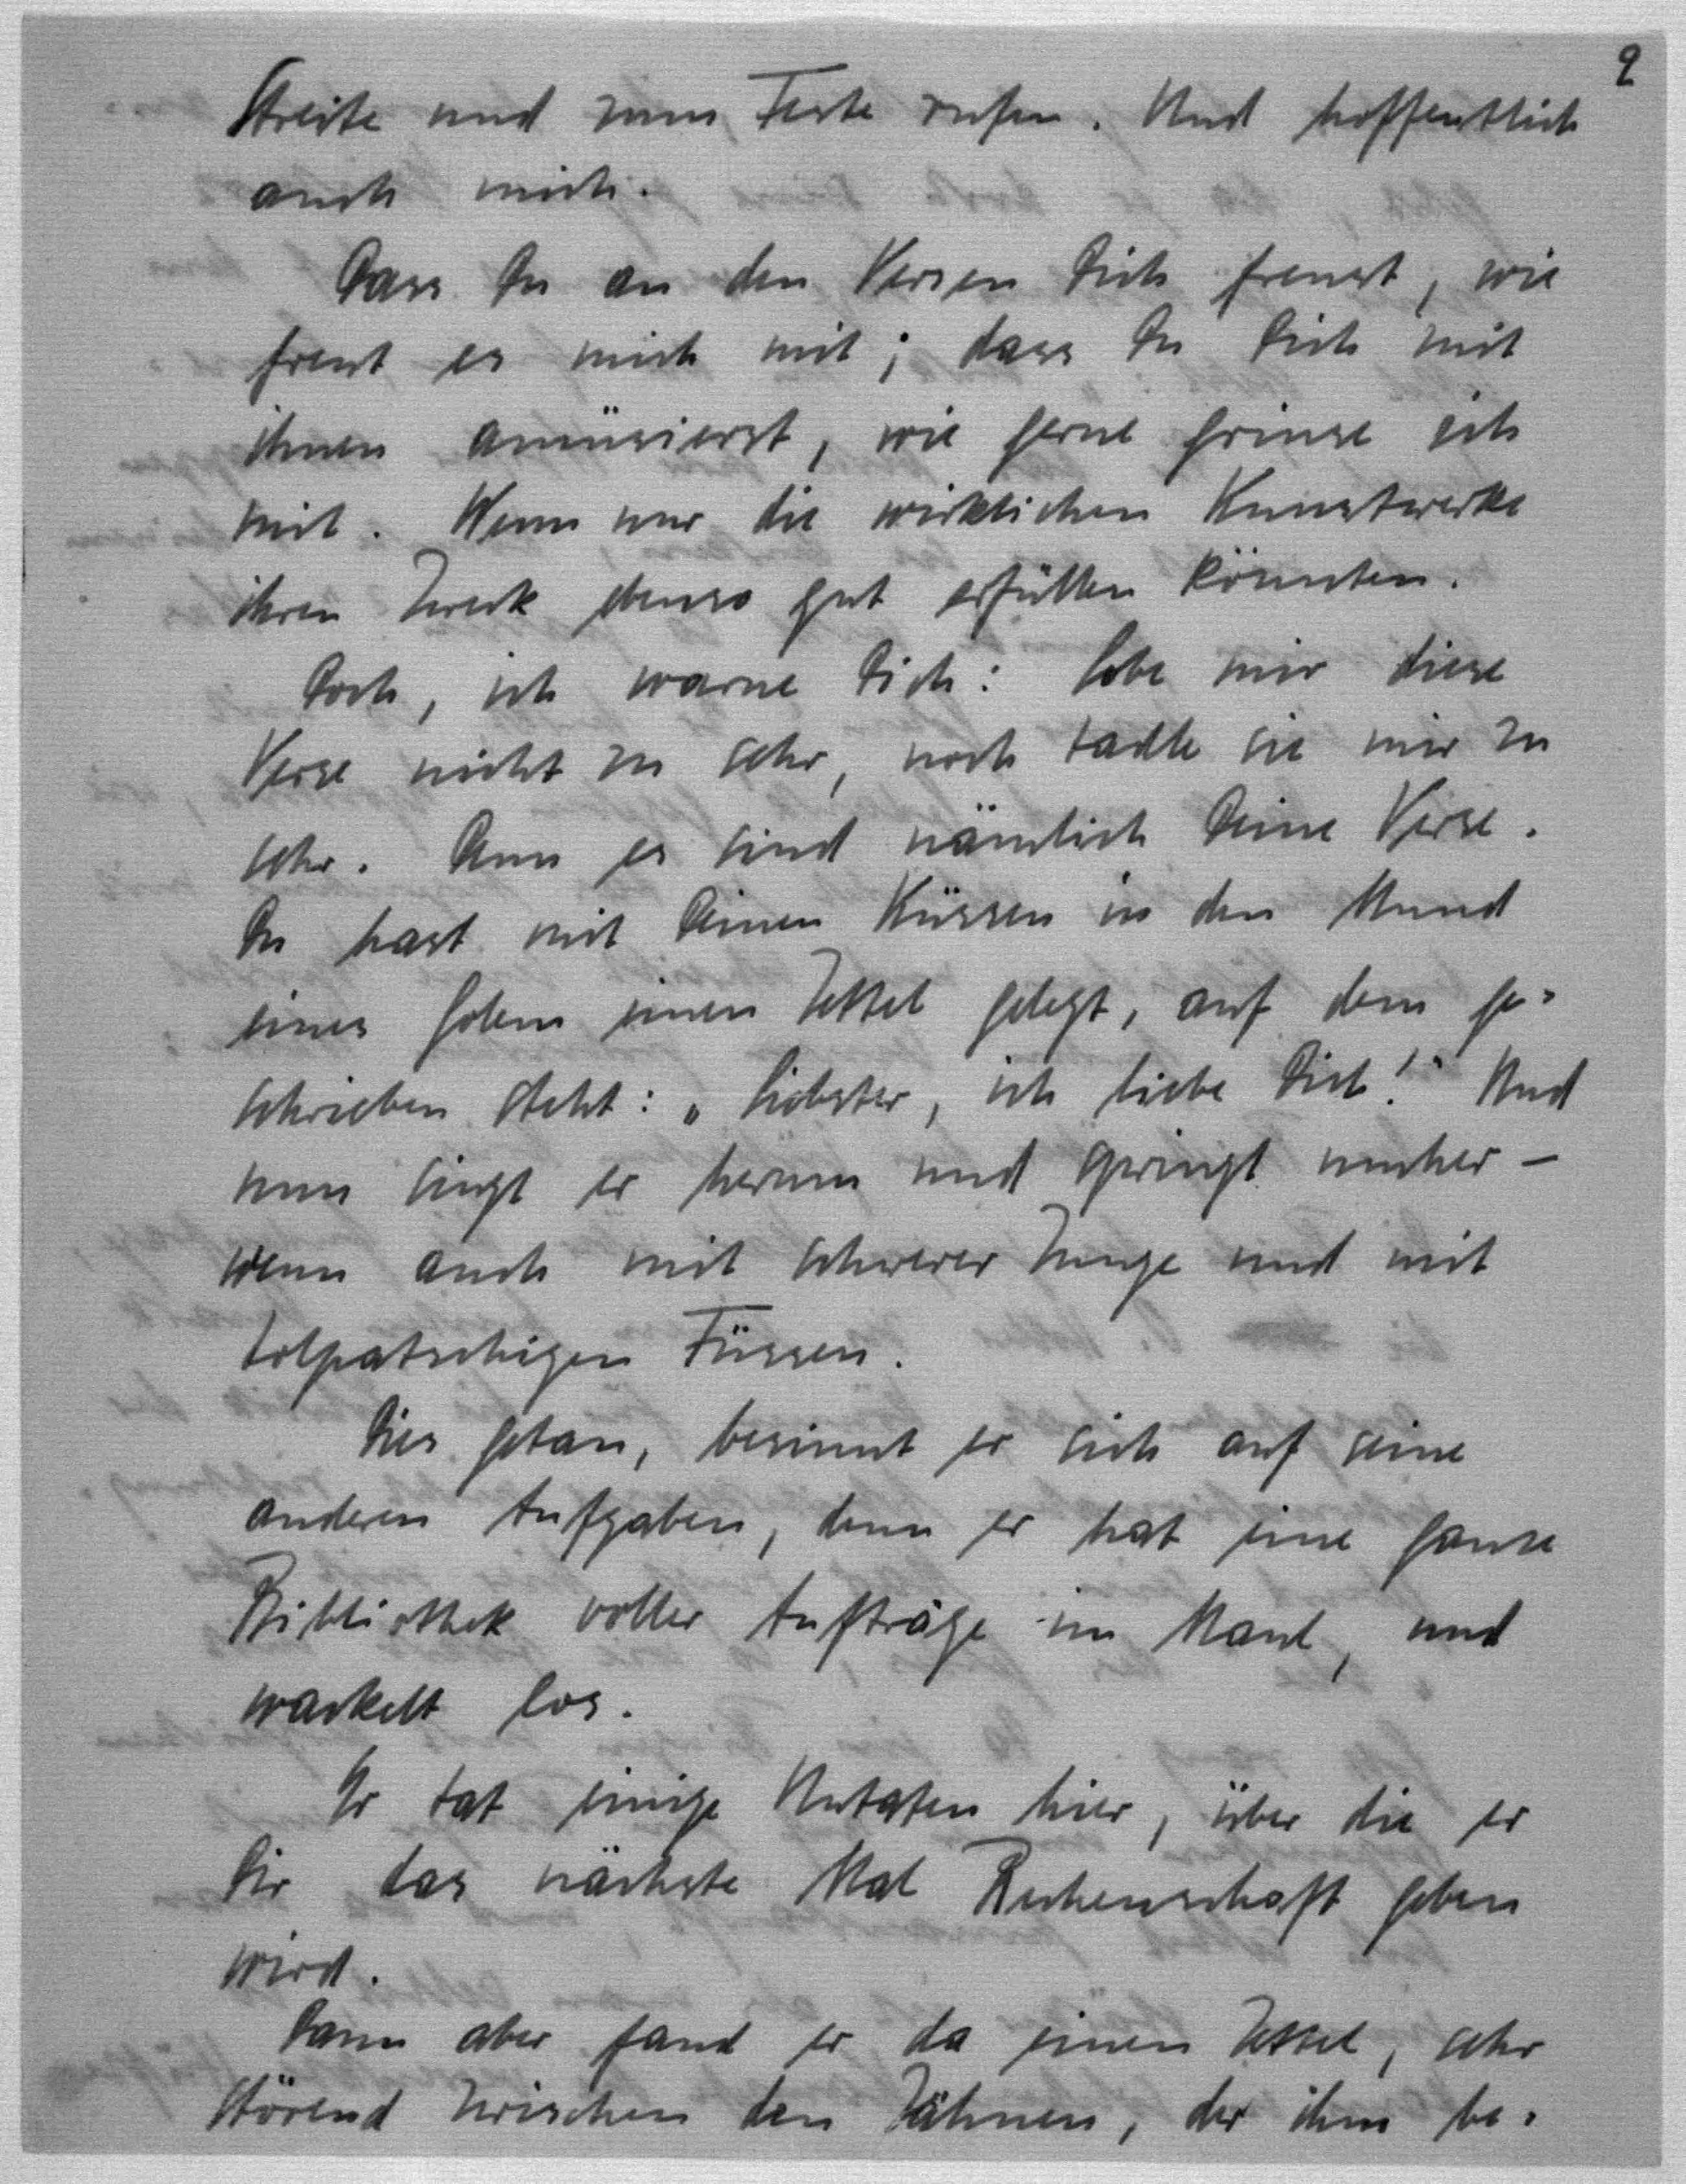 2
Streite und zum Feste rufen. Und hoffentlich
auch mich.
Dass Du an den Versen Dich freust, wie
freut es mich mit; dass Du Dich mit
ihnen amüsierst, wie gerne grinse ich
mit. Wenn nur die wirklichen Kunstwerke
ihren Zweck ebenso gut erfüllen könnten.
Doch, ich warne Dich: lobe mir diese
Verse nicht zu sehr, noch tadle sie mir zu
sehr. Denn es sind nämlich Deine Verse.
Du hast mit Deinen Küssen in den Mund
eines Golem einen Zettel gelegt, auf dem ge-
schrieben steht: „Liebster, ich liebe Dich!" Und
nun singt er herum und springt umher –
wenn auch mit schwerer Zunge und mit
tolpatschigen Füssen.
Dies getan, besinnt er sich auf seine
anderen Aufgaben, denn er hat eine ganze
Bibliothek voller Aufträge im Maul, und
wackelt los.
Er tat einige Untaten hier, über die er
Dir das nächste Mal Rechenschaft geben
wird.
Dann aber fand er da einen Zettel, sehr
störend zwischen den Zähnen, der ihm be-